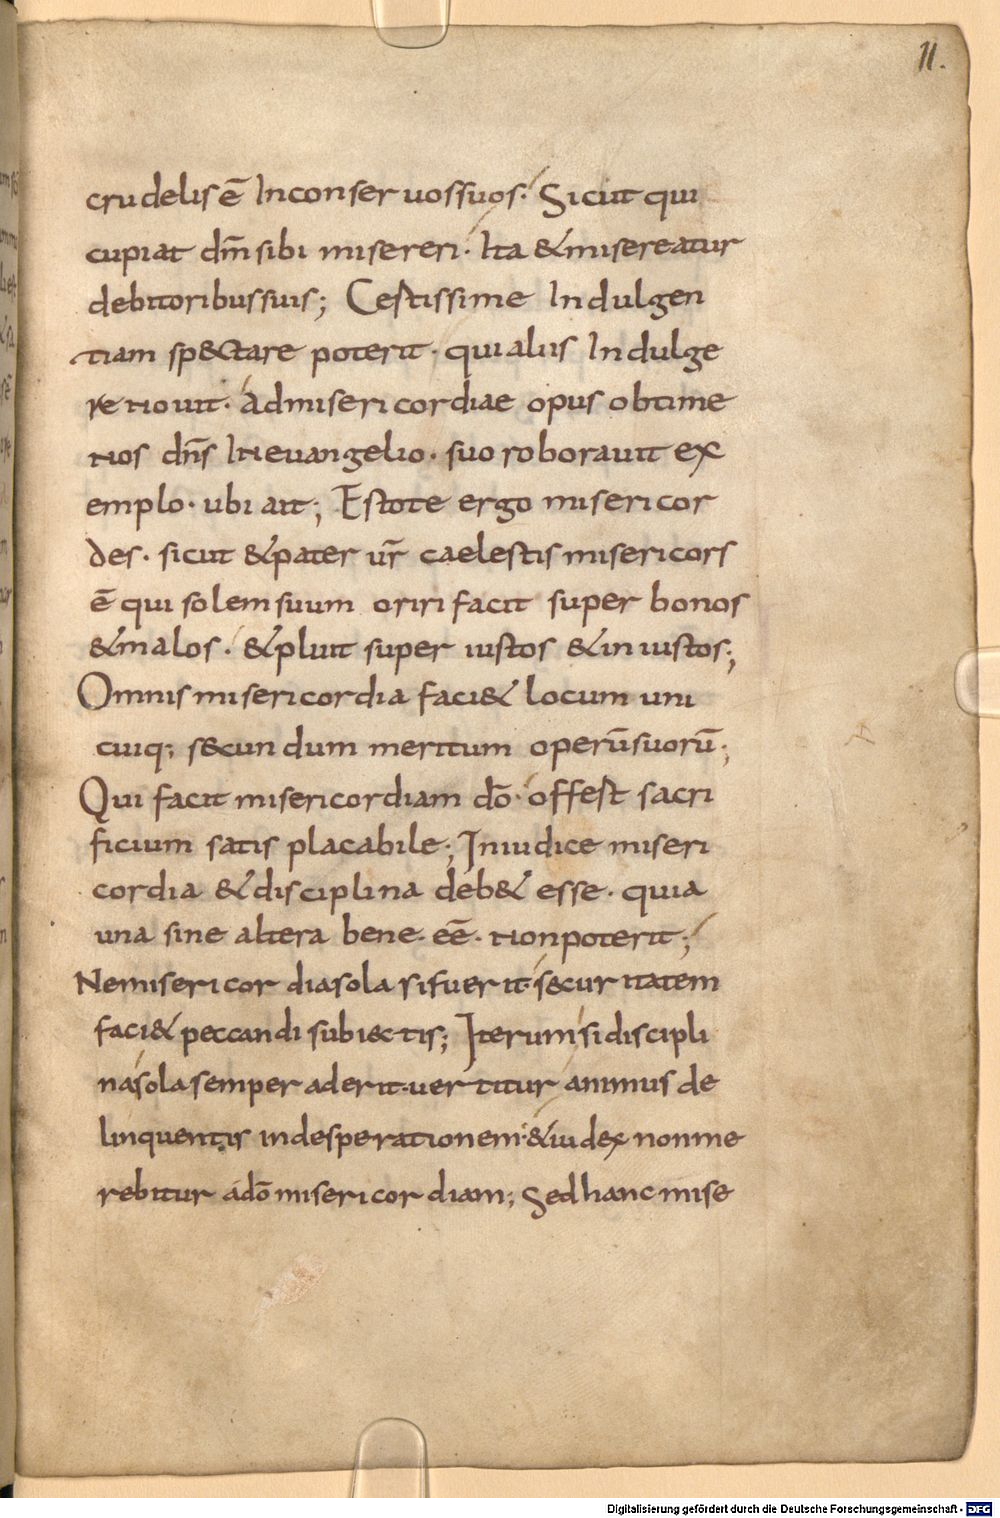 11.
crudelis ē In conseruos suos. Sicut qui
cupiat dn̄m sibi misereri. Ita & misereatur
debitoribus suis; Certissime Indulgen
tiam sp&ctare poterit. qui aliis Indulge
re nouit. Ad misericordiae opus obtime
nos dn̄s In euangelio. suo roborauit ex
emplo. ubi ait; Estote ergo misericor
des. sicut & pater ur̄ caelestis misericors
ē qui solem suum oriri facit super bonos
& malos. & pluit super iustos & iniustos;
Omnis misericordia faci& locum uni
cuiq; s&cundum meritum operū suorū;
Qui facit misericordiam dō. offest sacri
ficium satis placabile; In iudice miseri
cordia & disciplina deb& esse. quia
una sine altera bene. eē. non poterit;
Ne misericordia sola si fuerit. s&curitatem
faci& peccandi subiectis; Iterum si discipli
na sola semper aderit. uertitur animus de
linquentis in desperationem. & iudex non me
rebitur a dō misericordiam; Sed hanc mise
Digitalisierung gefördert durch die Deutsche Forschungsgemeinschaft - DFG